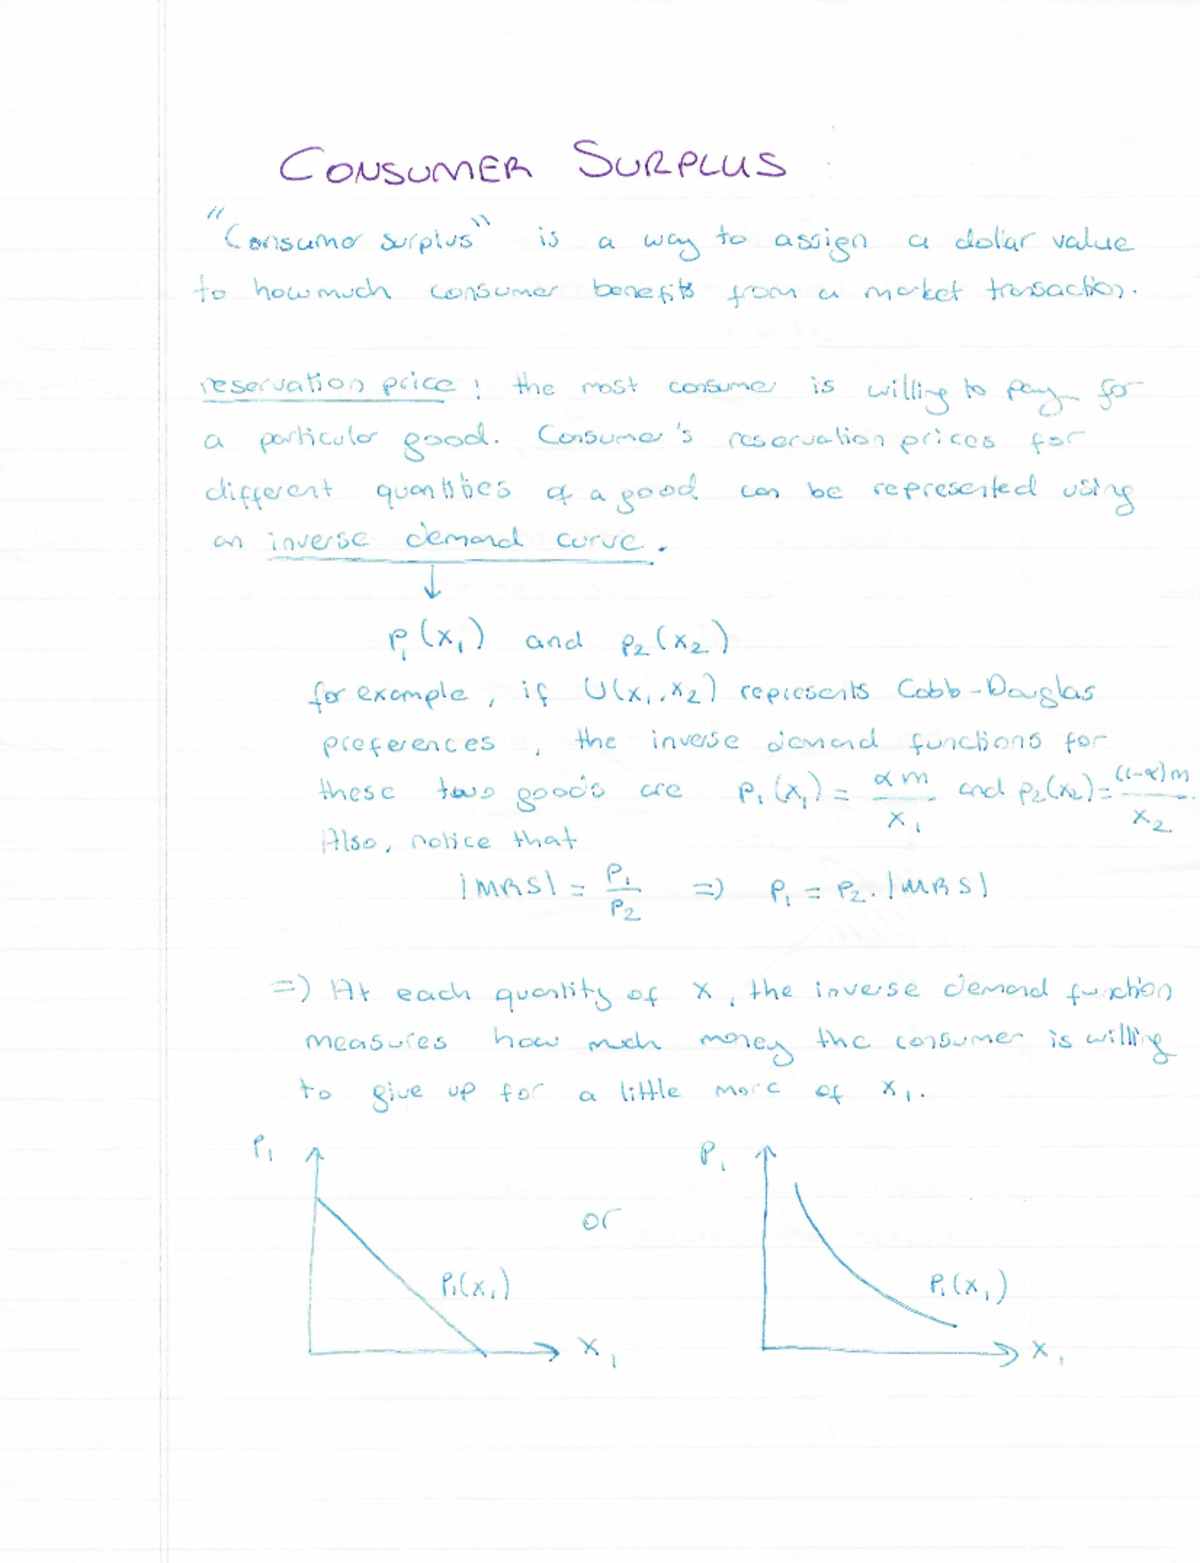 CONSUMER SURPLUS
"Consumer surplus" is a way to assign a dollar value
to how much consumer benefits from a market transaction.
reservation price: the most consumer is willing to pay for
a particular good. Consumer's reservation prices for
different quantities of a good can be represented using
an inverse demand curve.
↓
P₁(x₁) and P₂(x₂)
for example, if U(x₁,x₂) represents Cobb-Douglas
preferences, the inverse demand functions for
these two goods are P₁(x₁) = αm/x₁ and P₂(x₂) = (1-α)m/x₂.
Also, notice that
|MRS| = P₁/P₂ => P₁ = P₂.|MRS|
=) At each quantity of x, the inverse demand function
measures how much money the consumer is willing
to give up for a little more of x₁.
P₁ P₁
or
P₁(x₁) P₁(x₁)
x₁ x₁